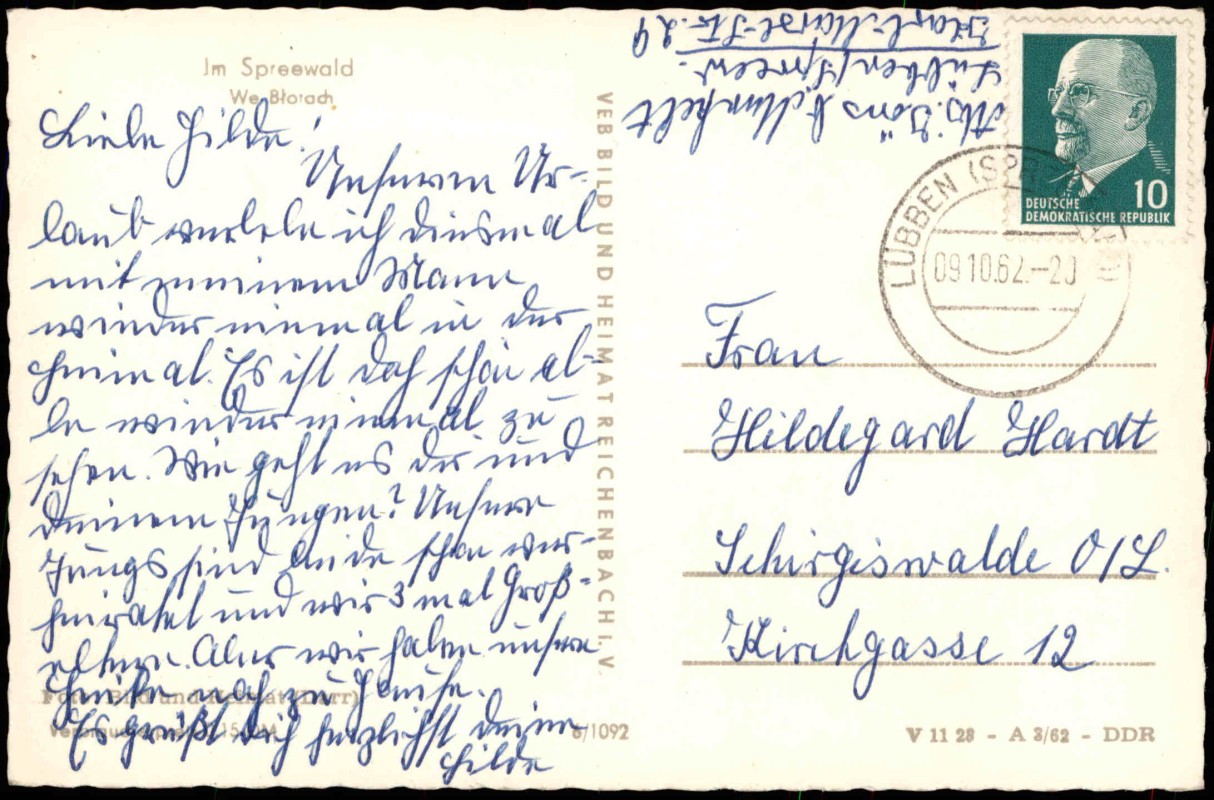 Im Spreewald
We Błotach
Liebe Hilde!
Unseren Ur-
laub verlebe ich diesmal
mit meinem Mann
wieder einmal in der
Heimat. Es ist doch schön al-
le wieder einmal zu
sehen. Wie geht es dir und
deinem Jungen? Unsere
Jungs sind beide schon ver-
heiratet und wir 3 mal Groß-
eltern. Aber wir haben unsere
noch zu Hause.
Es grüßt dich herzlichst deine
Hilde
Foto: Bild und Heimat (Darr)
6/1092
VEB BILD UND HEIMAT REICHENBACH I. V.
Abs:
Lübben/Spreew.
Karl-Marx-Str. 29
DEUTSCHE
DEMOKRATISCHE REPUBLIK
10
LÜBBEN (SPREEWALD)
09.10.62.--20
Frau
Hildegard Hardt
Schirgiswalde O/L.
Kirchgasse 12
V 11 28 - A 3/62 - DDR